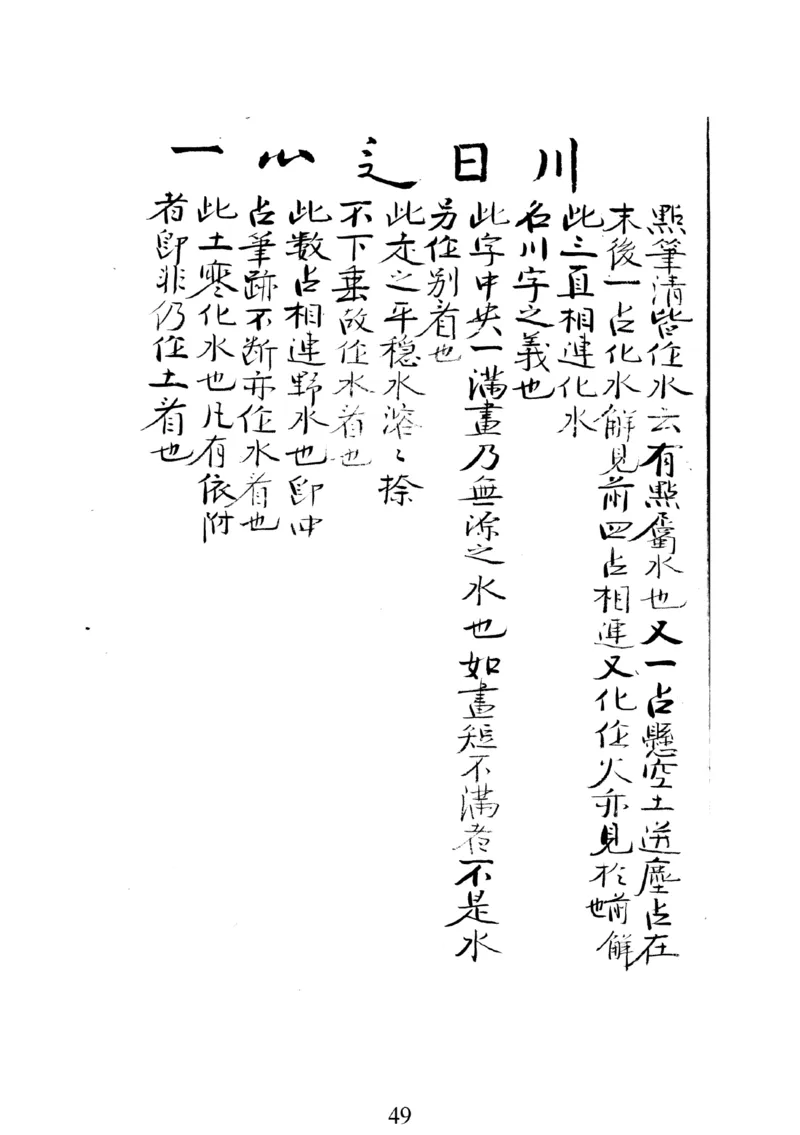 點筆清皆作水云有點屬水也又一占懸空土迸塵占在
末後一占化水解見前四占相連又化作火亦見於前解也
川
此三直相連化水
名川字之義也
日
此字中央一滿畫乃無源之水也如畫短不滿者不是水
另作別看也
辶
此走之平穩水溶々捺
不下垂故作水看也
心
此數占相連野水也即中
占筆跡不斷亦作水看也
一
此土寒化水也凡有依附
者即非仍作土看也
49